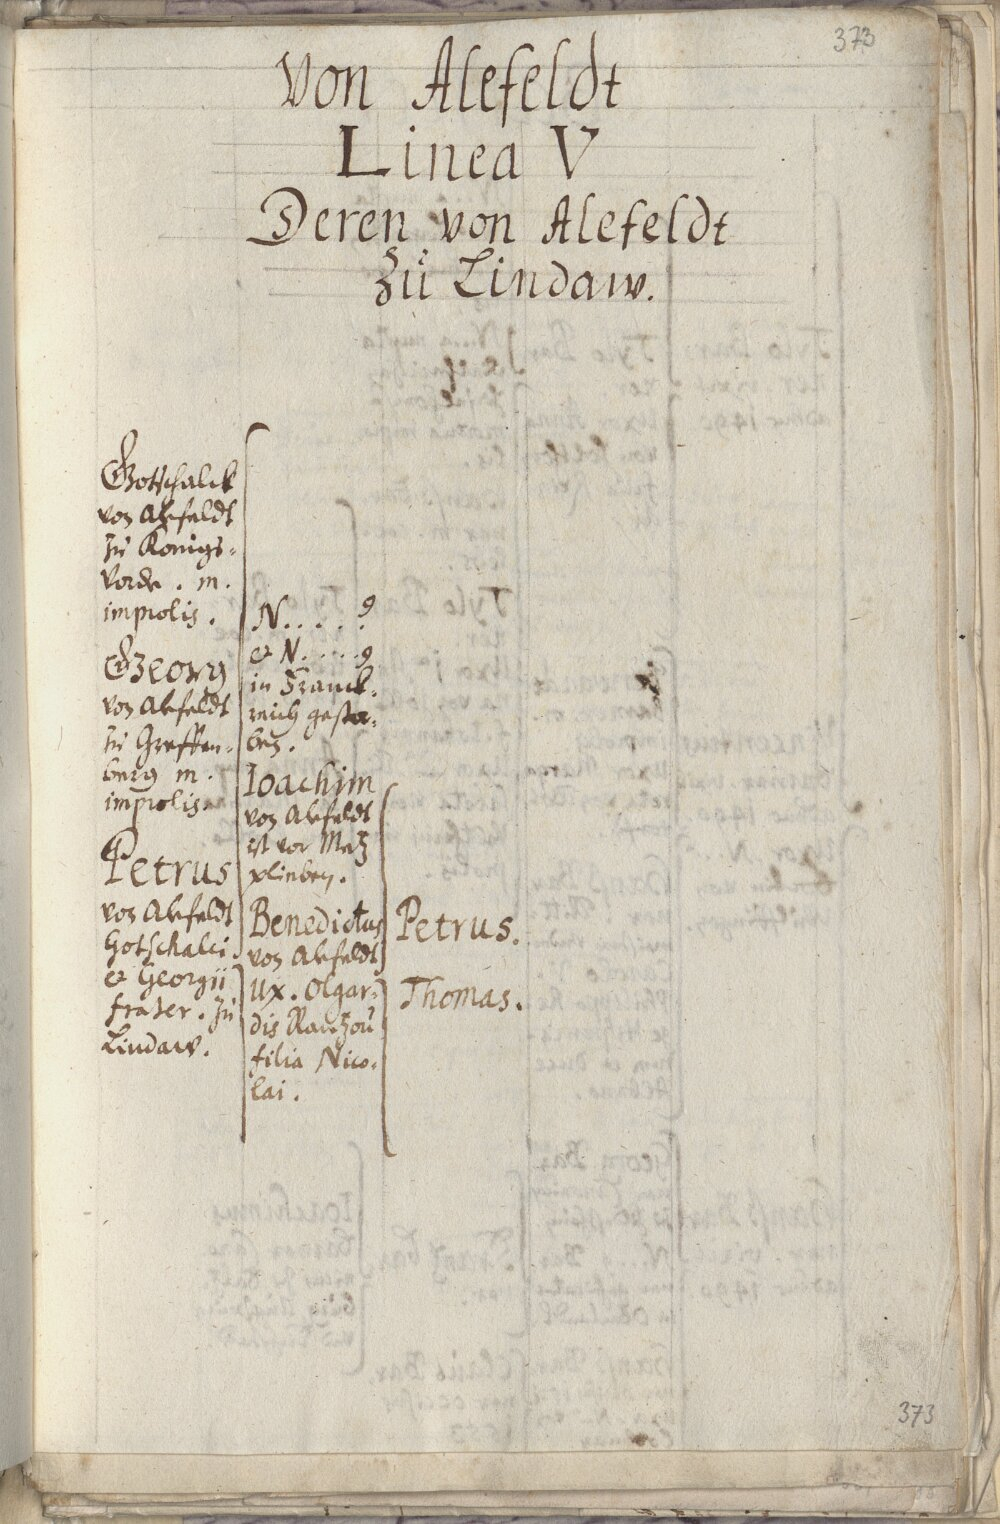 373
Von Alefeldt
Linea V
Deren von Alefeldt
Zů Lindaw.
Gotschalck
von Alefeldt
zů Konigs-
vorde. m.
improlis.
Georg
von Alefeldt
zů Greffen-
berg m.
improlis.
Petrus
von Alefeldt
Gotschalci
& Georgii
frater. zů
Lindaw.
N.....
& N.....
in Franck-
reich gestor-
ben.
Ioachim
von Alefeldt
ist vor Metz
plieben.
Benedictus
von Alefeldt
Ux. Olgar-
dis Rantzoů
filia Nico-
lai.
Petrus.
Thomas.
373